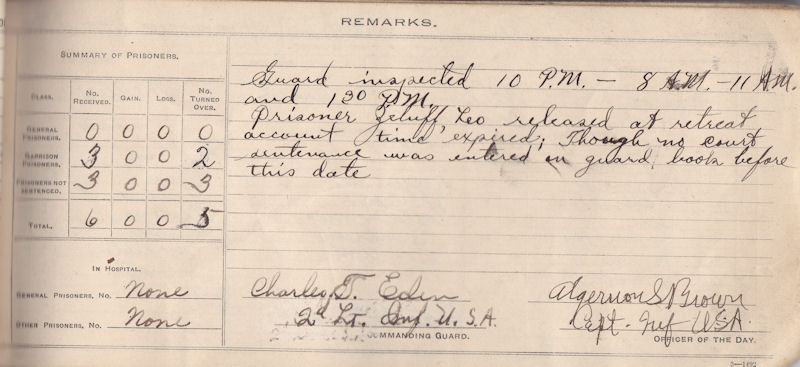 REMARKS.
SUMMARY OF PRISONERS.
CLASS. NO. RECEIVED. GAIN. LOSS. NO. TURNED OVER.
GENERAL PRISONERS. 0 0 0 0
GARRISON PRISONERS. 3 0 0 2
PRISONERS NOT SENTENCED. 3 0 0 3
TOTAL. 6 0 0 5
IN HOSPITAL.
GENERAL PRISONERS, NO. None
OTHER PRISONERS, NO. None
Guard inspected 10 P.M. – 8 A.M. – 11 A.M.
and 1 30 P.M.
Prisoner Leo released at retreat
account time expired; Though no court
sentenance was entered on guard book before
this date
Charles T. Eden
2d Lt. Inf. U.S.A.
COMMANDING GUARD.
Algernon S Brown
Capt. Inf USA.
OFFICER OF THE DAY.